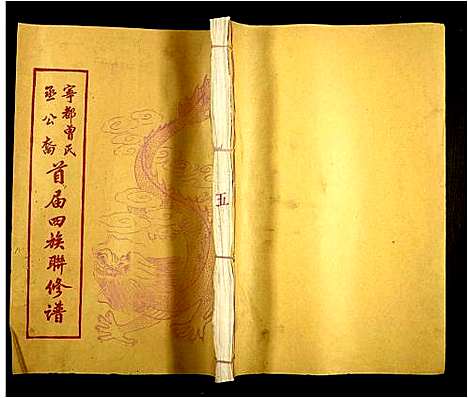 寧都曾氏
丞公裔
首届四族聯修譜
五